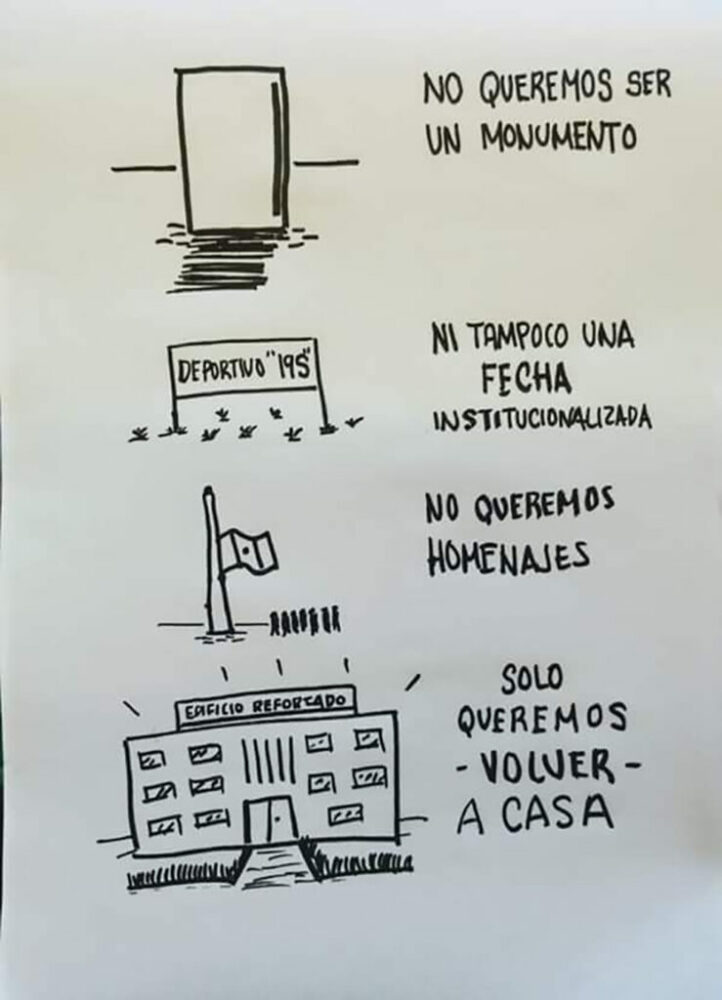 NO QUEREMOS SER
UN MONUMENTO
DEPORTIVO "19S"
NI TAMPOCO UNA
FECHA
INSTITUCIONALIZADA
NO QUEREMOS
HOMENAJES
EDIFICIO REFORTADO
SOLO
QUEREMOS
- VOLVER -
A CASA